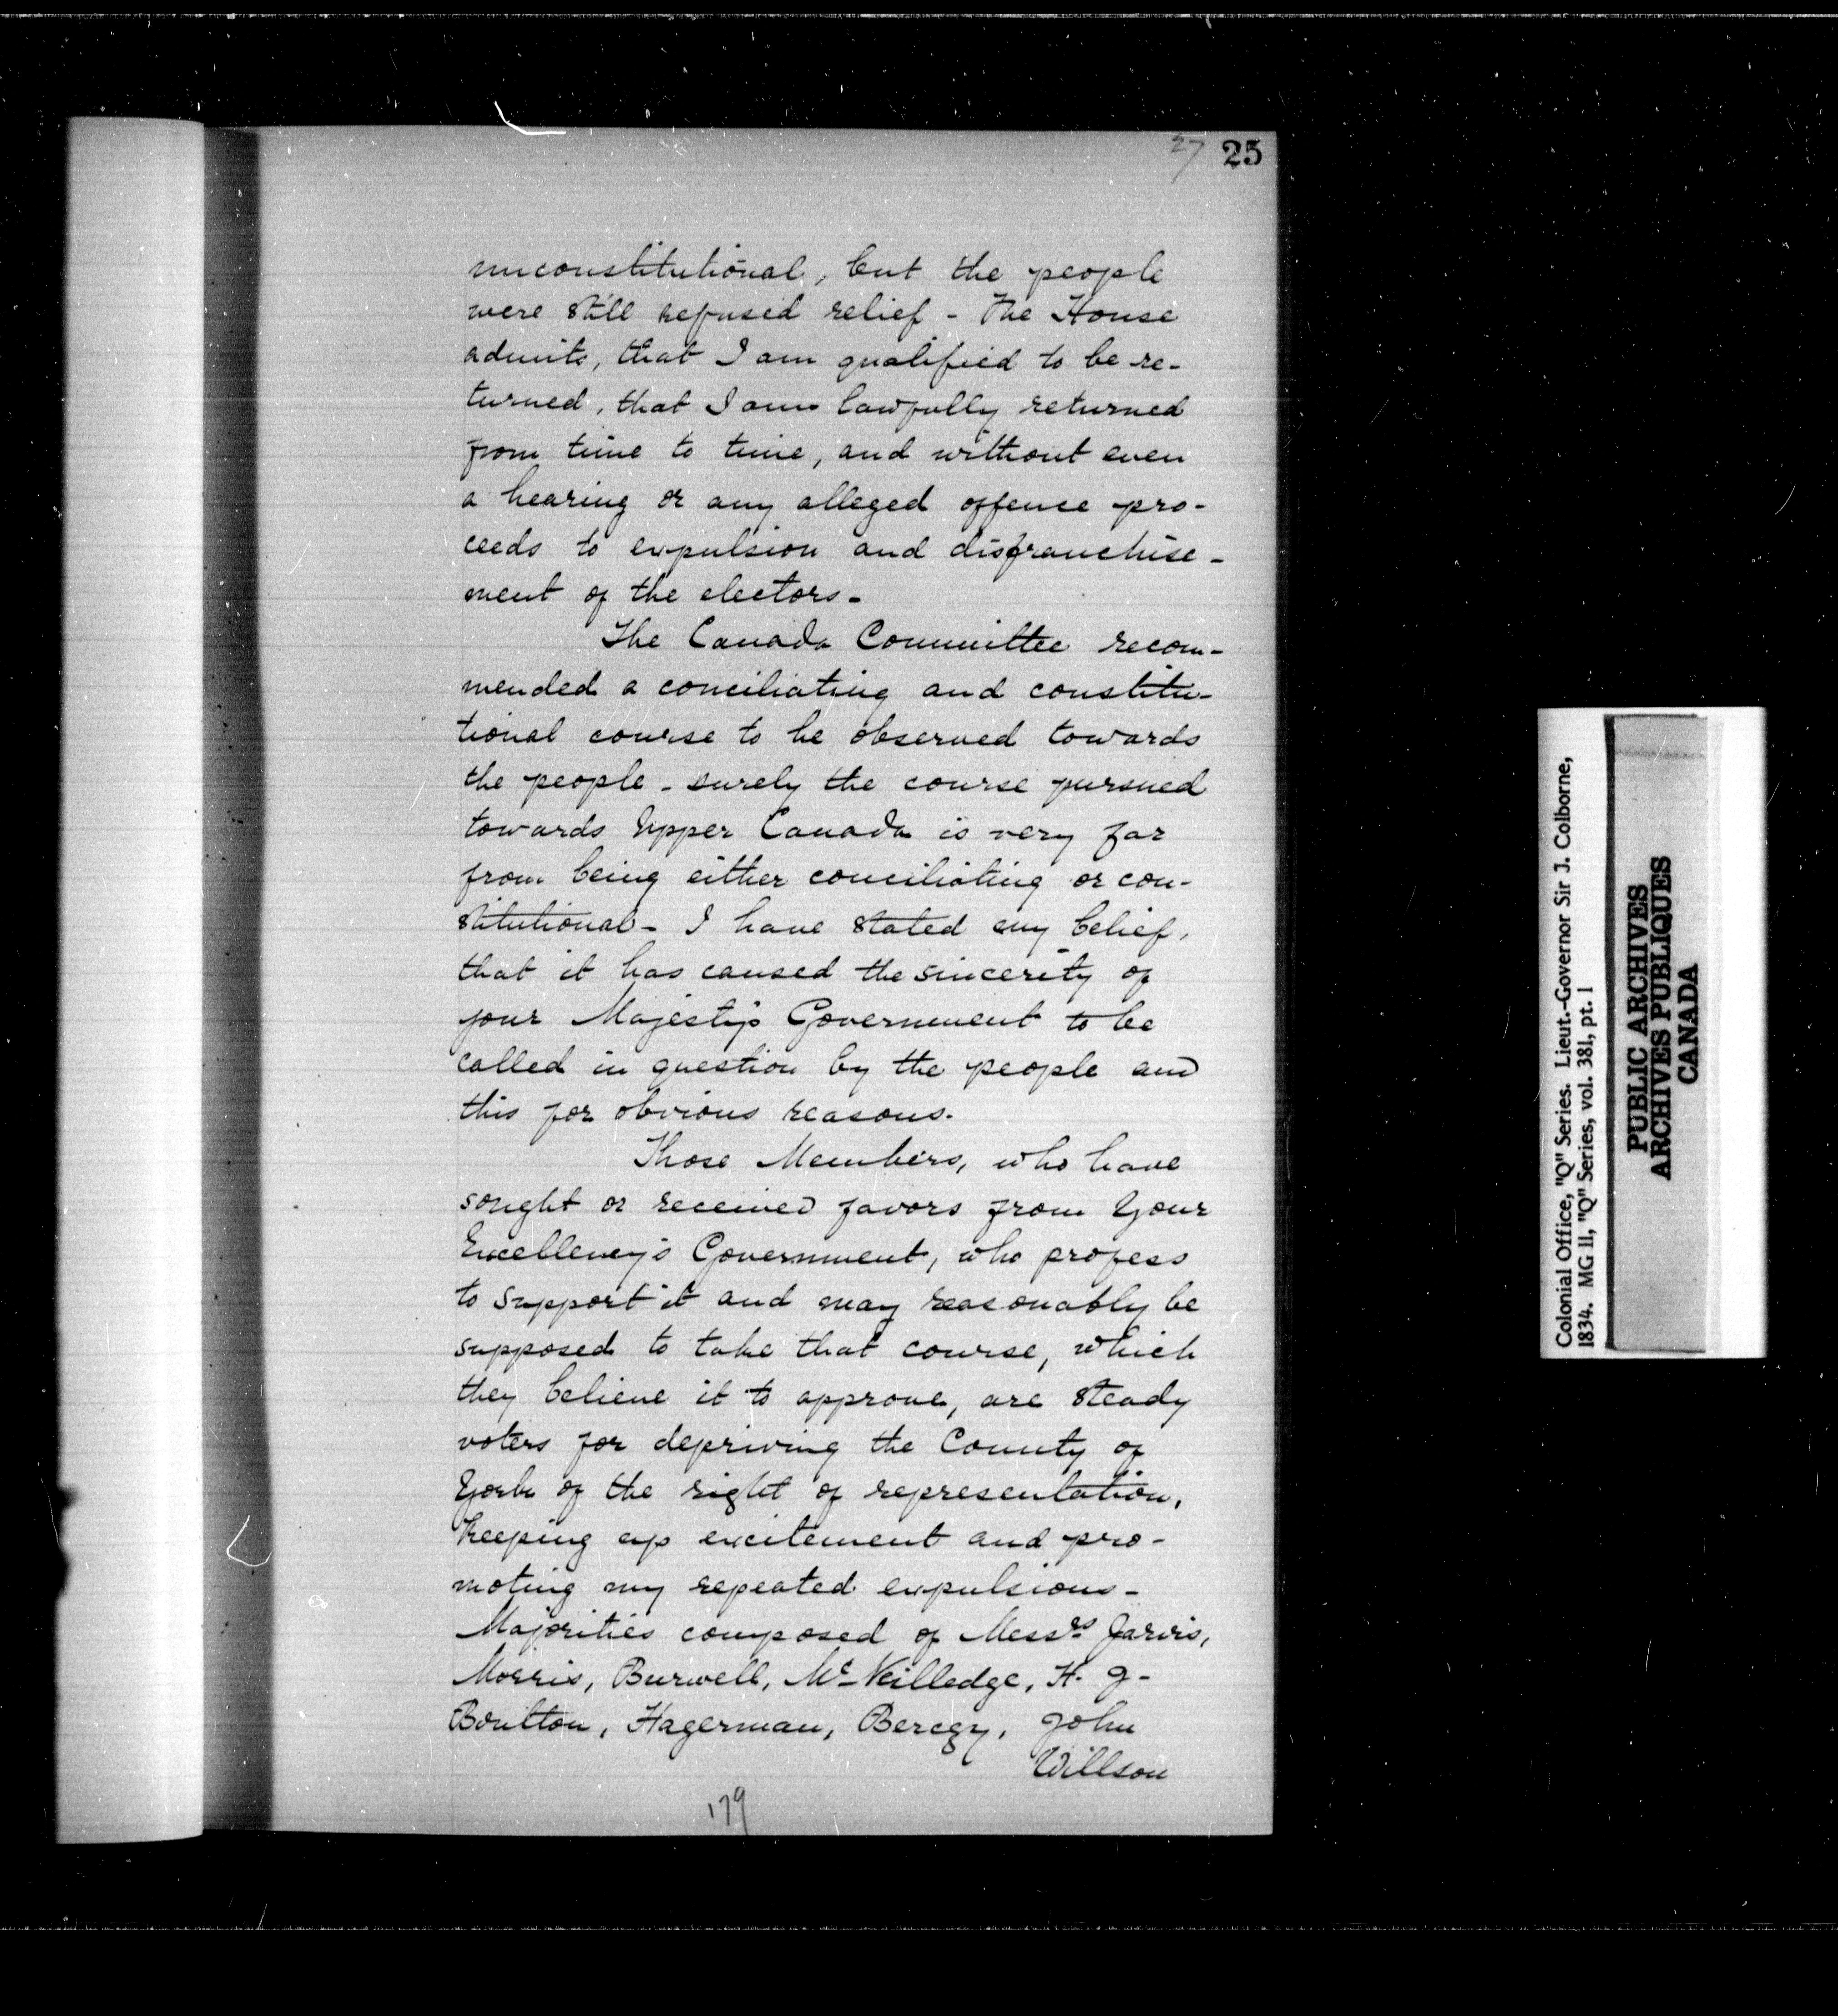 27 25
unconstitutional, but the people
were still refused relief - The House
admits, that I am qualified to be re-
turned, that I am lawfully returned
from time to time, and without even
a hearing or any alleged offense pro-
ceeds to expulsion and disfranchise-
ment of the electors -
The Canada Committee recom-
mended a conciliating and constitu-
tional course to be observed towards
the people - surely the course pursued
towards Upper Canada is very far
from being either conciliating or con-
stitutional - I have stated my belief,
that it has caused the sincerity of
your Majesty's Government to be
called in question by the people and
this for obvious reasons.
Those Members, who have
sought or received favors from Your
Excellency's Government, who profess
to support it and may reasonably be
supposed to take that course, which
they believe it to approve, are steady
voters for depriving the County of
York of the right of representation,
keeping up excitement and pro-
moting my repeated expulsions -
Majorities composed of Messrs Jarvis,
Morris, Burwell, Mc Neilledge, H. J -
Boulton, Hagerman, Berczy, John
Willson
179
Colonial Office, "Q" Series. Lieut.-Governor Sir J. Colborne,
1834. MG 11, "Q" Series, vol. 381, pt. 1
PUBLIC ARCHIVES
ARCHIVES PUBLIQUES
CANADA